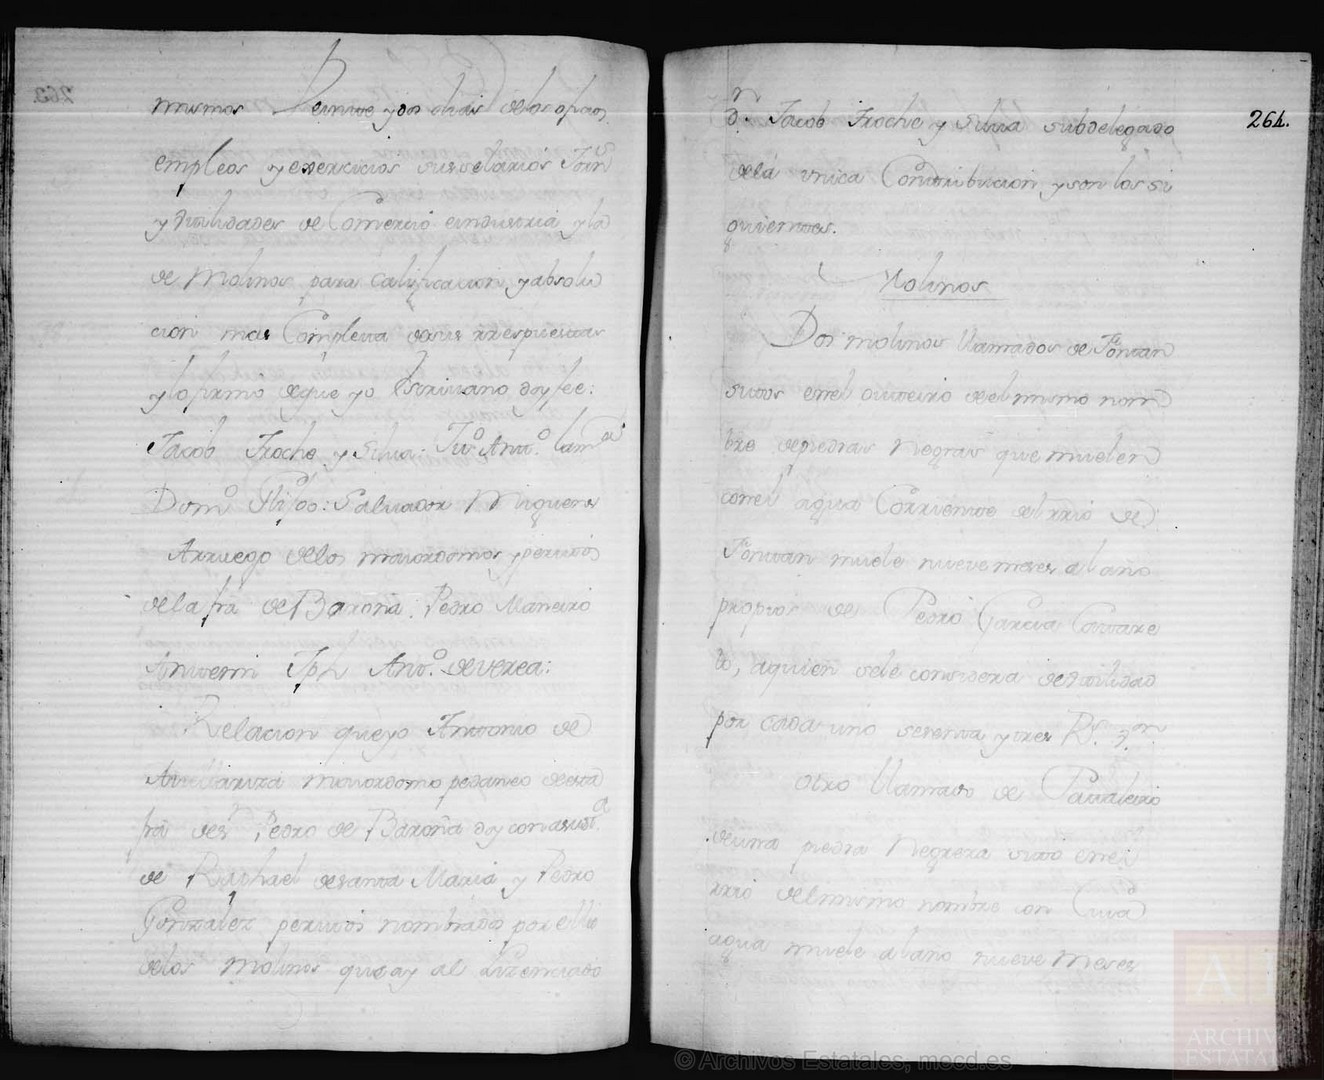 mismos Veintte y dos dias de los oficios
empleos y exercicios sus selarios Jorn.s
y Vtilidades de Comercio eindustria y la
de Molinos para Calificacion y absolu
cion mas Completa de sus rrespuestas
y lo firmo de que yo Escriuano doy fee:
Jacob Troche y Silua: Ju.o Antt.o
Dom.o Saluador Migueres
Arruego de los maiordomos y peritos
de la fra de Baroña. Pedro Maneiro
Anttemi Antt.o de verea:
Relacion que yo Antonio de
maiordomo pedaneo de esta
fra de s.n Pedro de Baroña doy con assist.a
de Raphael de santa Maria y Pedro
Gonzalez peritos nombrados por ella
de los Molinos que ay al Lizenciado
D.n Jacob Troche y Silua subdelegado
de la vnica Conttribucion y son los si
guienttes.
Molinos
Dos molinos llamados de Fontan
sitos en el outeiro del mismo nom
bre de piedras Negras que muelen
con el agua Corriente del rrio de
Fontan muele nueve meses al año
propios de Pedro Garcia Couttare
lo, aquien se le considera de vtilidad
por cada uno setenta y tres R.s v.on
Otro llamado de
de una piedra Negrera sitto en el
rrio del mismo nombre con Cuia
agua muele al año nueve Meses
264.
263
© Archivos Estatales, mecd.es
ARCHIVO
ESTATAL